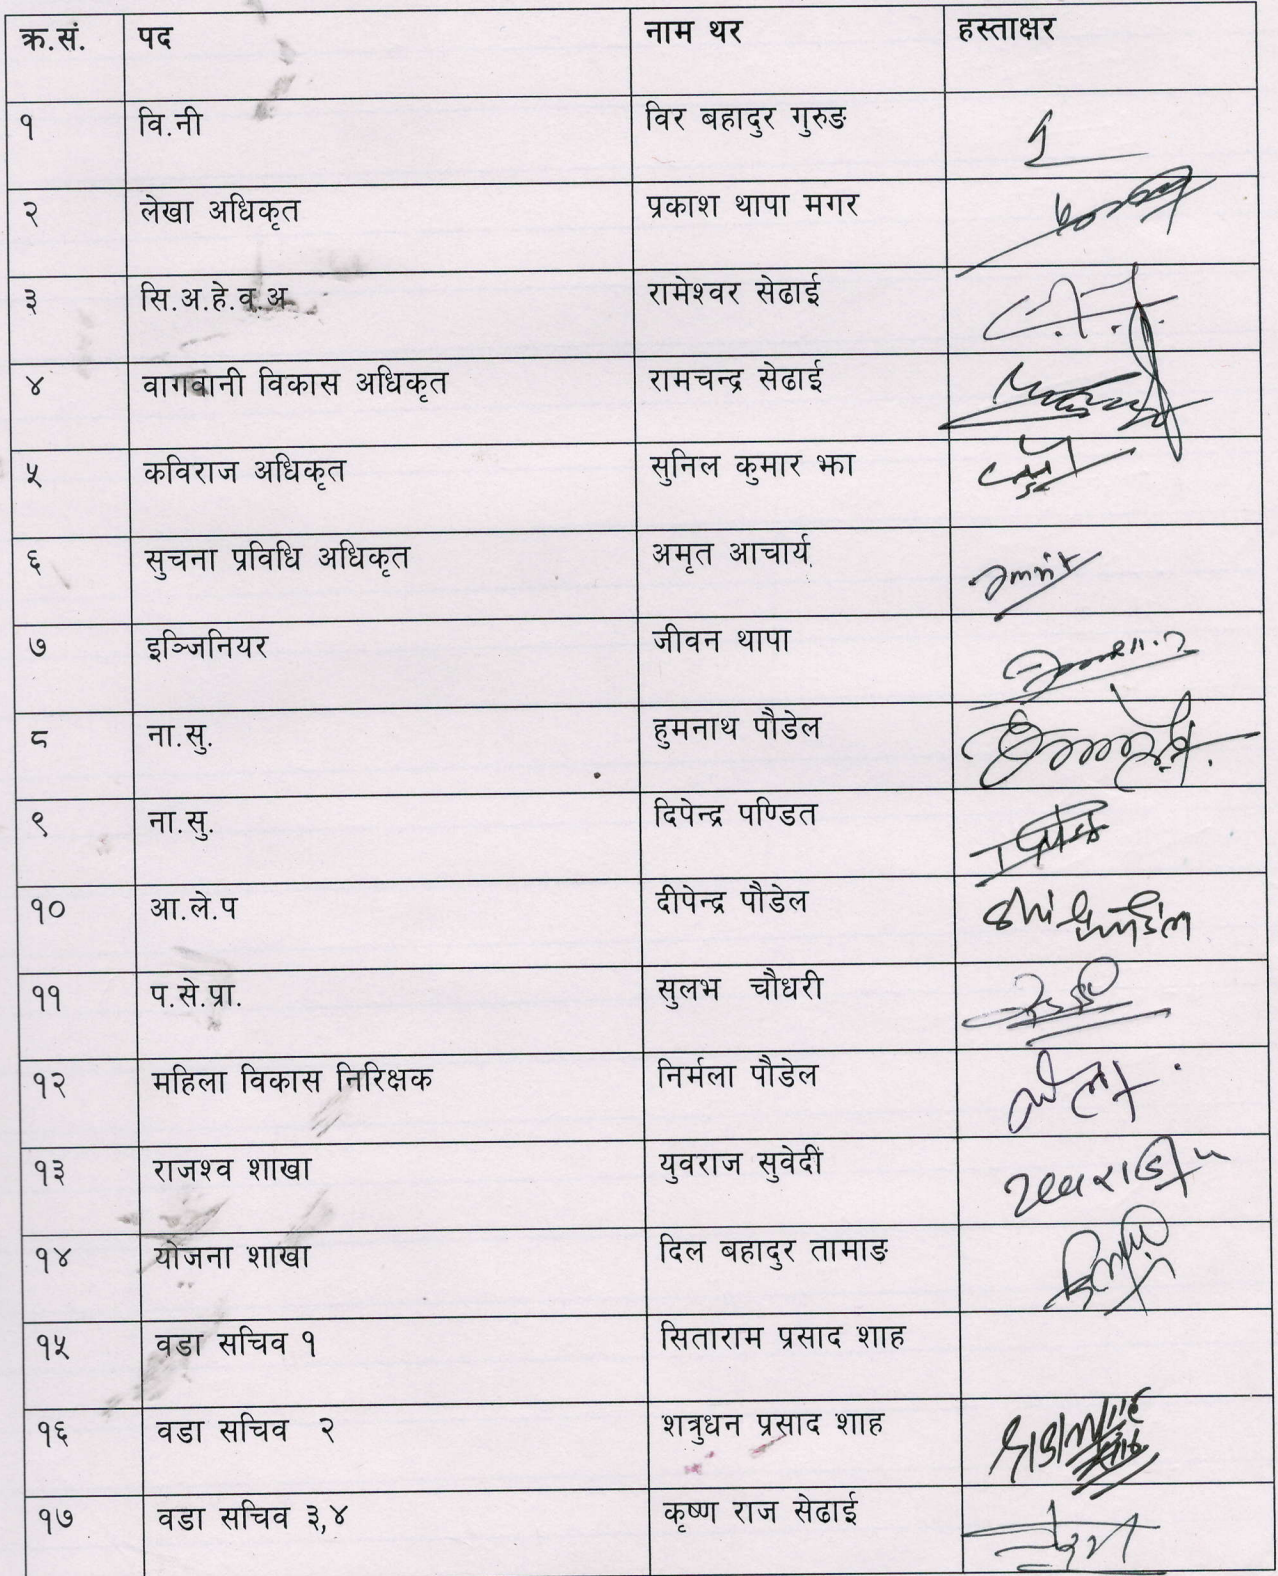 क्र.सं. पद नाम थर हस्ताक्षर
१ वि.नी विर बहादुर गुरुङ
२ लेखा अधिकृत प्रकाश थापा मगर
३ सि.अ.हे.व.अ रामेश्वर सेढाई
४ वागवानी विकास अधिकृत रामचन्द्र सेढाई
५ कविराज अधिकृत सुनिल कुमार झा
६ सुचना प्रविधि अधिकृत अमृत आचार्य
७ इञ्जिनियर जीवन थापा
८ ना.सु. हुमनाथ पौडेल
९ ना.सु. दिपेन्द्र पण्डित
१० आ.ले.प दीपेन्द्र पौडेल
११ प.से.प्रा. सुलभ चौधरी
१२ महिला विकास निरिक्षक निर्मला पौडेल
१३ राजश्व शाखा युवराज सुवेदी
१४ योजना शाखा दिल बहादुर तामाङ
१५ वडा सचिव १ सिताराम प्रसाद शाह
१६ वडा सचिव २ शत्रुधन प्रसाद शाह
१७ वडा सचिव ३,४ कृष्ण राज सेढाई